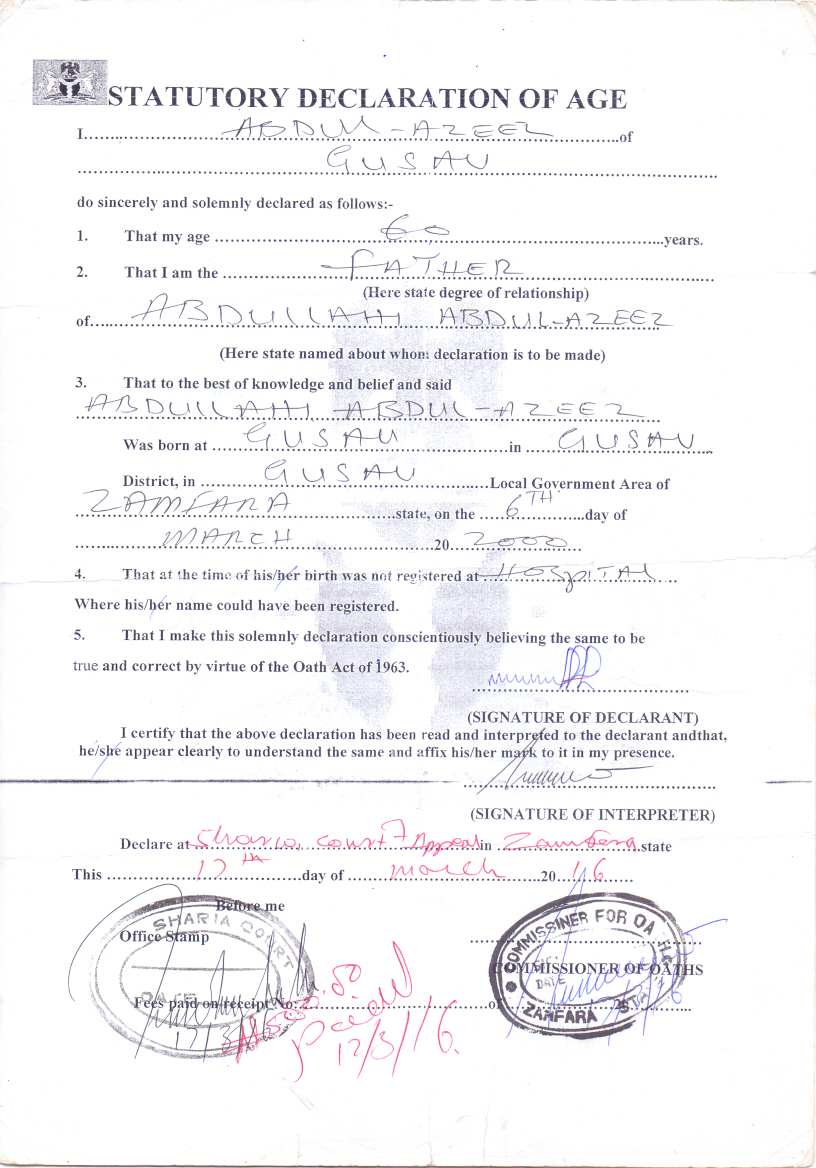 STATUTORY DECLARATION OF AGE
I ABDUL-AZEEZ of
GUSAU
do sincerely and solemnly declared as follows:-
1. That my age 60 years.
2. That I am the FATHER
(Here state degree of relationship)
of ABDULLAHI ABDUL-AZEEZ
(Here state named about whom declaration is to be made)
3. That to the best of knowledge and belief and said
ABDULLAHI ABDUL-AZEEZ
Was born at GUSAU in GUSAU
District, in GUSAU Local Government Area of
ZAMFARA state, on the 6TH day of
MARCH 20 2000
4. That at the time of his/her birth was not registered at HOSPITAL
Where his/her name could have been registered.
5. That I make this solemnly declaration conscientiously believing the same to be
true and correct by virtue of the Oath Act of 1963.
(SIGNATURE OF DECLARANT)
I certify that the above declaration has been read and interpreted to the declarant andthat,
he/she appear clearly to understand the same and affix his/her mark to it in my presence.
(SIGNATURE OF INTERPRETER)
Declare at Sharia Court of Appeal in Zamfara state
This 17th day of march 20 16
Before me
SHARIA COURT
Office Stamp
DATE
COMMISSINER FOR OATHS
COMMISSIONER OF OATHS
DATE
ZAMFARA STATE
Fees paid on receipt No: of